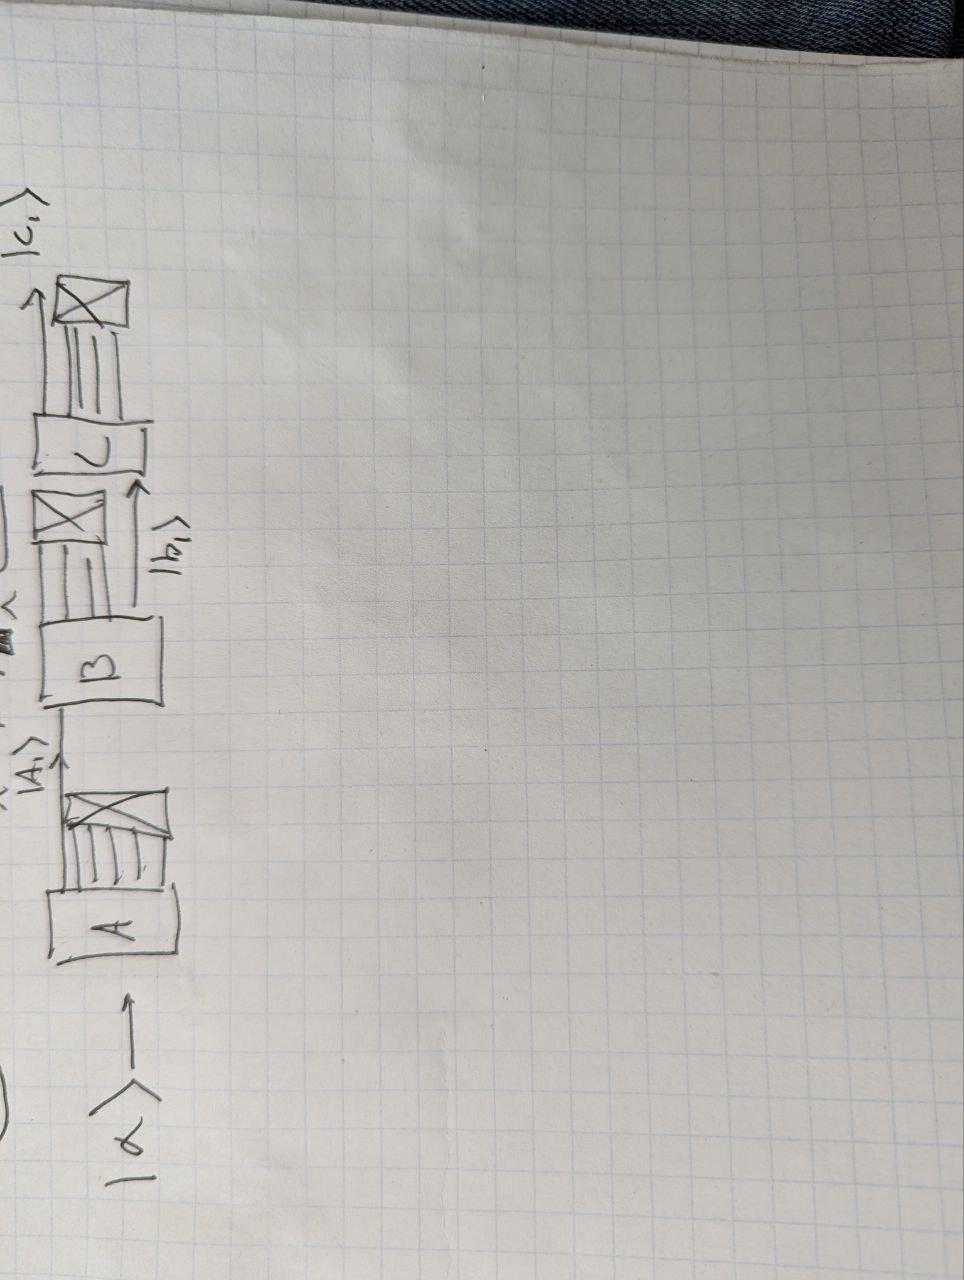 |α⟩ → A |A₁⟩ B |b₁⟩ C |c₁⟩